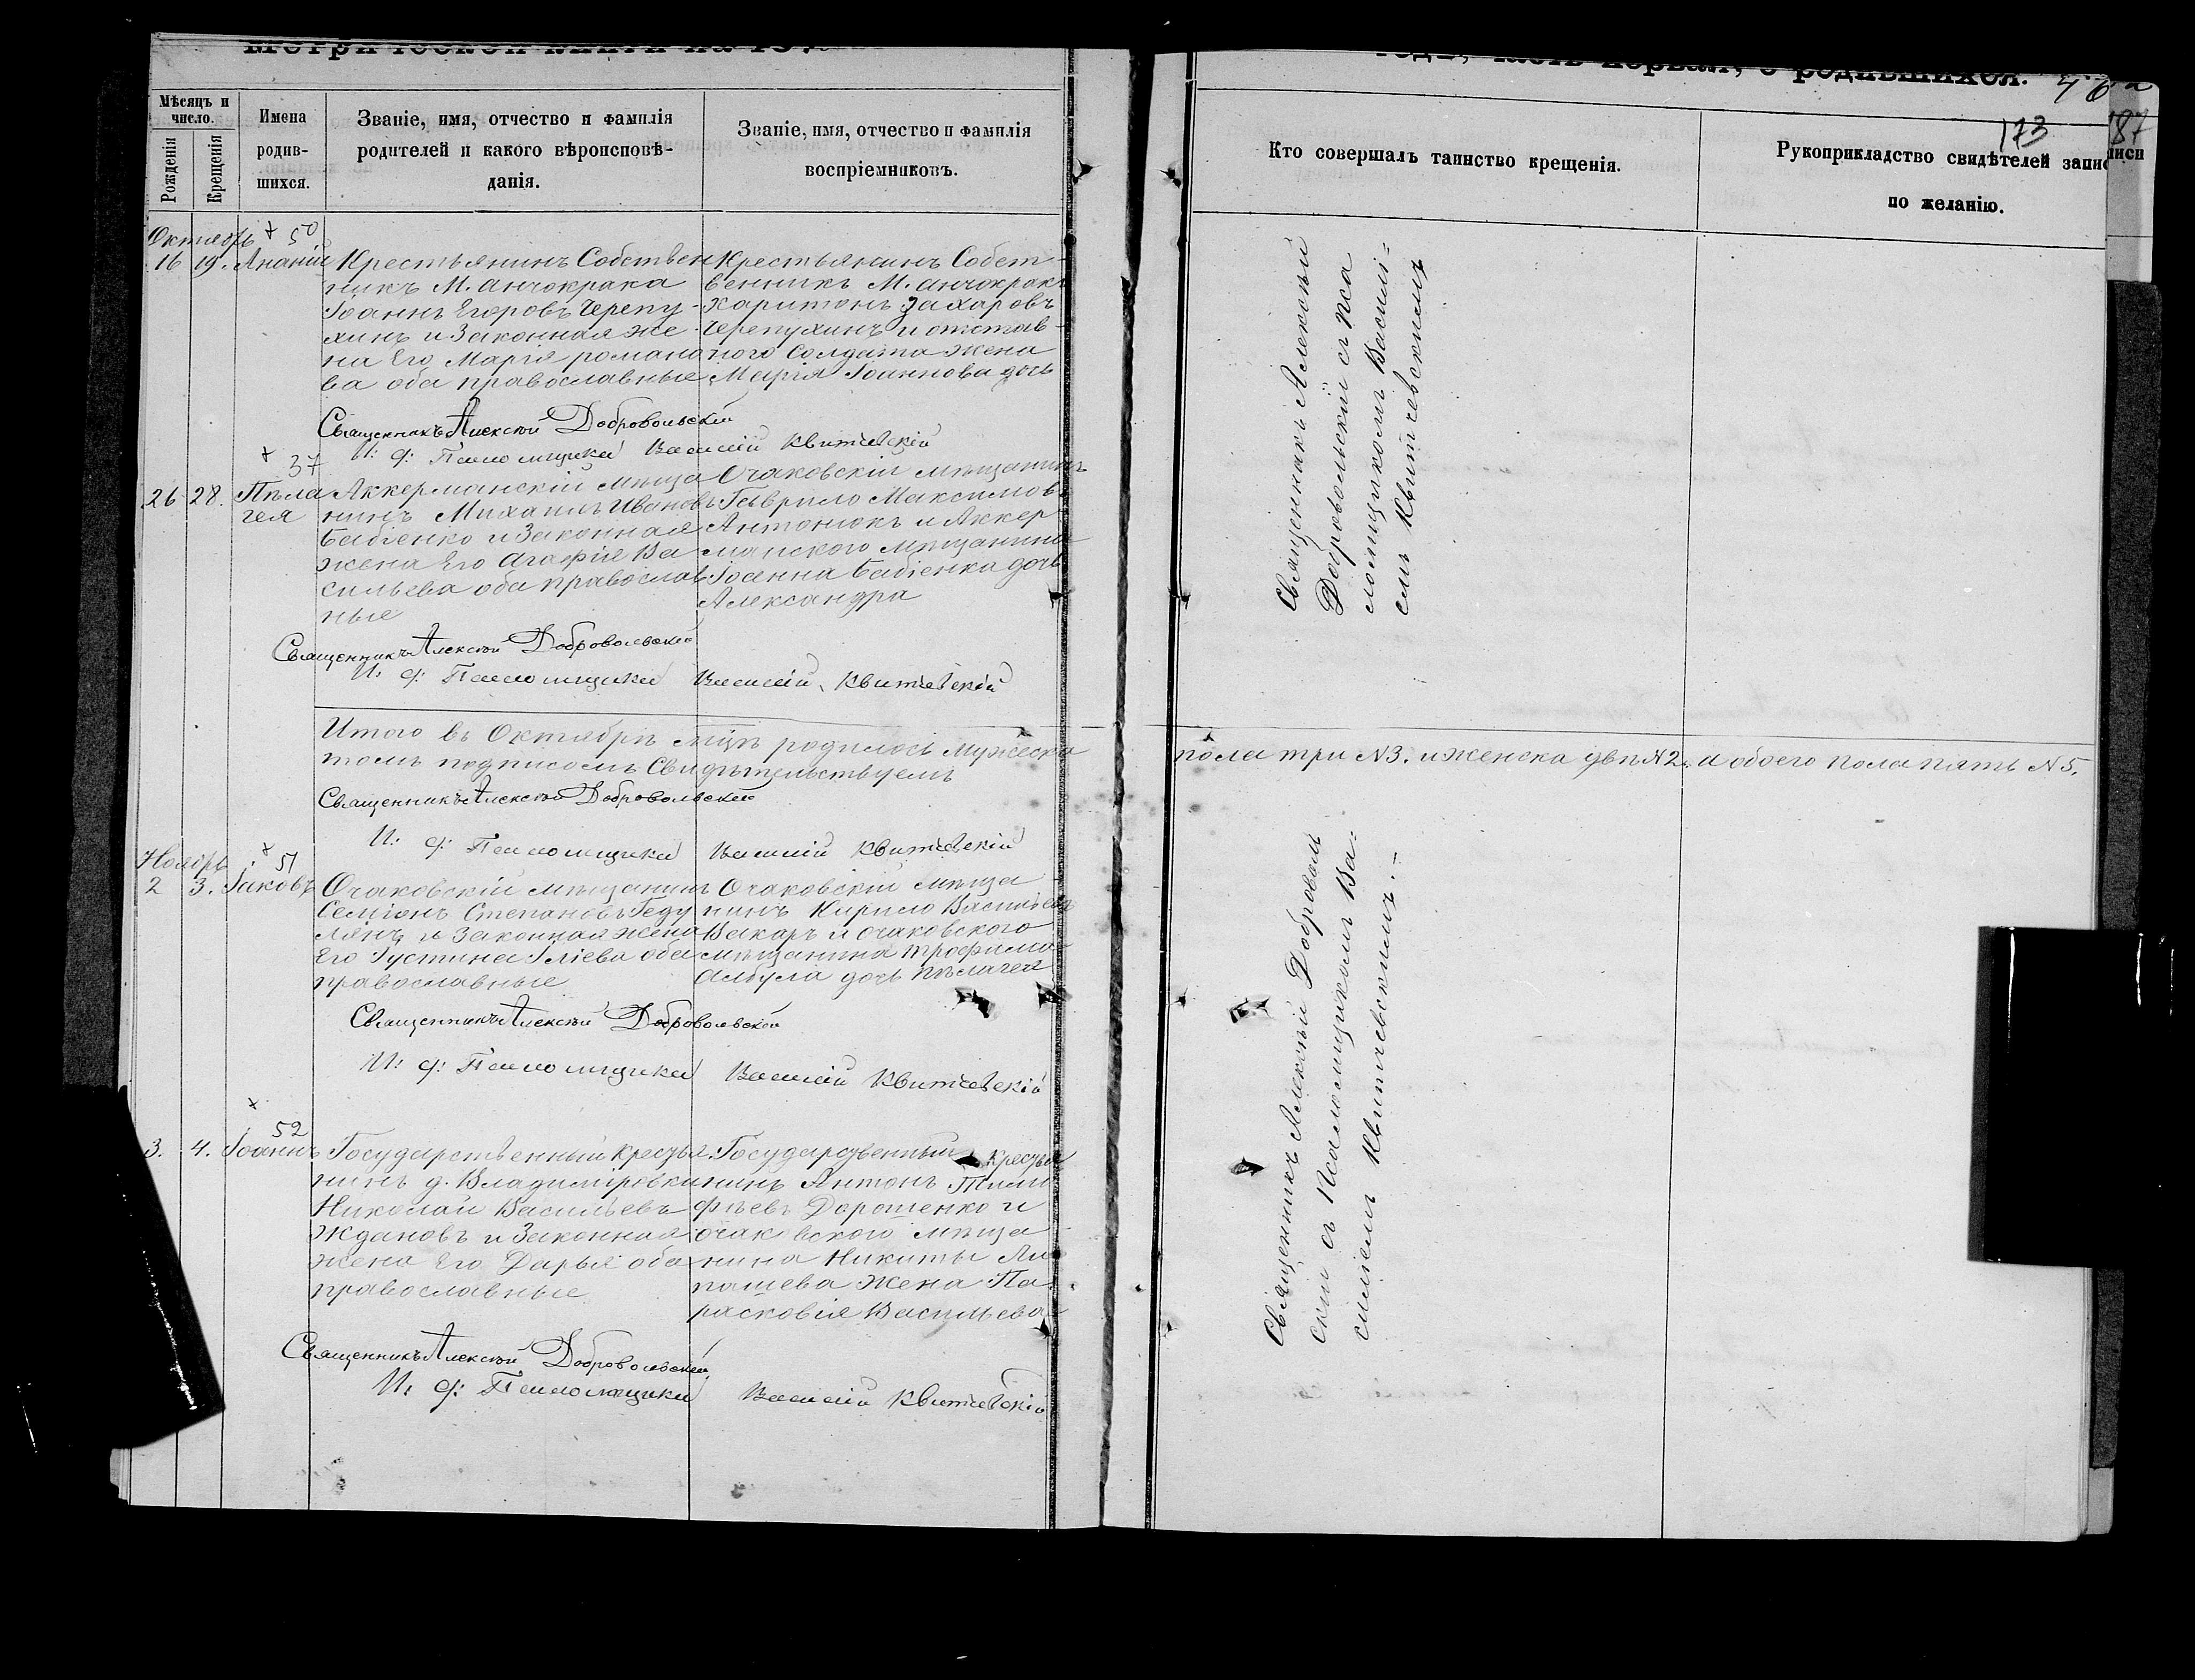 Метрической книги на 187
годъ, часть первая, о родившихся.
173
187
Мѣсяцъ и число.
Рожденія
Крещенія
Имена родив-шихся.
Званіе, имя, отчество и фамилія
родителей и какого вѣроисповѣ-
данія.
Званіе, имя, отчество и фамилія
воспріемниковъ.
Кто совершалъ таинство крещенія.
Рукоприкладство свидѣтелей записи
по желанію.
Октябрь
50
16 19. Ананій
Крестьянинъ Собствен
никъ М. Анчокрака
Іоаннъ Егоровъ Черепу-
хинъ и Законная же-
на Его Марія романо
ва оба православные
Крестьянинъ Собст-
венникъ М. Анчокрака
Харитонъ Захаровъ
Черепухинъ и отстав-
ного Солдата жена
Марія Іоаннова дочь
Священникъ Алексѣй Добровольскій
И: д: Псаломщика Василій Квитчевскій
37
26 28. Пѣла
гея
Аккерманскій мѣща
нинъ Михаилъ Ивановъ
Бабіенко и Законная
жена Его Агафія Ва
сильева оба православ
ные
Очаковскій мѣщанинъ
Гаврило Максимовъ
Антонюкъ и Аккер
манского мѣщанина
Іоанна Бабіенка дочь
Александра
Священникъ Алексѣй Добровольскій
И: д: Псаломщика Василій Квитчевскій
Священникъ Алексѣй
Добровольскій съ Пса
ломщикомъ Василі=
емъ Квитчевскимъ
Итого въ Октябрѣ мцѣ родилось мужеска
пола три №3. и женска двѣ №2. и обоего пола пять №5.
томъ подписомъ Свидѣтельствуемъ
Священникъ Алексѣй Добровольскій
И: д: Псаломщика Василій Квитчевскій
Ноябрь
51
2 3. Іаковъ
Очаковскій мѣщанинъ
Семіонъ Степановъ Геду
лянъ и Законная жена
Его Густина Іліева оба
православные
Очаковскій мѣща
нинъ Кирило Васильевъ
Вакаръ и очаковского
мѣщанина Трофима
Албула дочь Пѣлагея
Священникъ Алексѣй Добровольскій
И: д: Псаломщика Василій Квитчевскій
52
3. 4. Іоаннъ
Государственный кресть
нинъ д. Владиміровки
Николай Васильевъ
Ждановъ и Законная
жена Его Дарья оба
православные
Государственный кресть
нинъ Антонъ Тимо
фѣевъ Дорошенко и
очаковского мѣща
нина Никиты
жена Па
расковія Васильева
Священникъ Алексѣй Добровольскій
И: д: Псаломщика Василій Квитчевскій
Священникъ Алексѣй Доброволь
скій съ Псаломщикомъ Ва-
силіемъ Квитчевскимъ.=